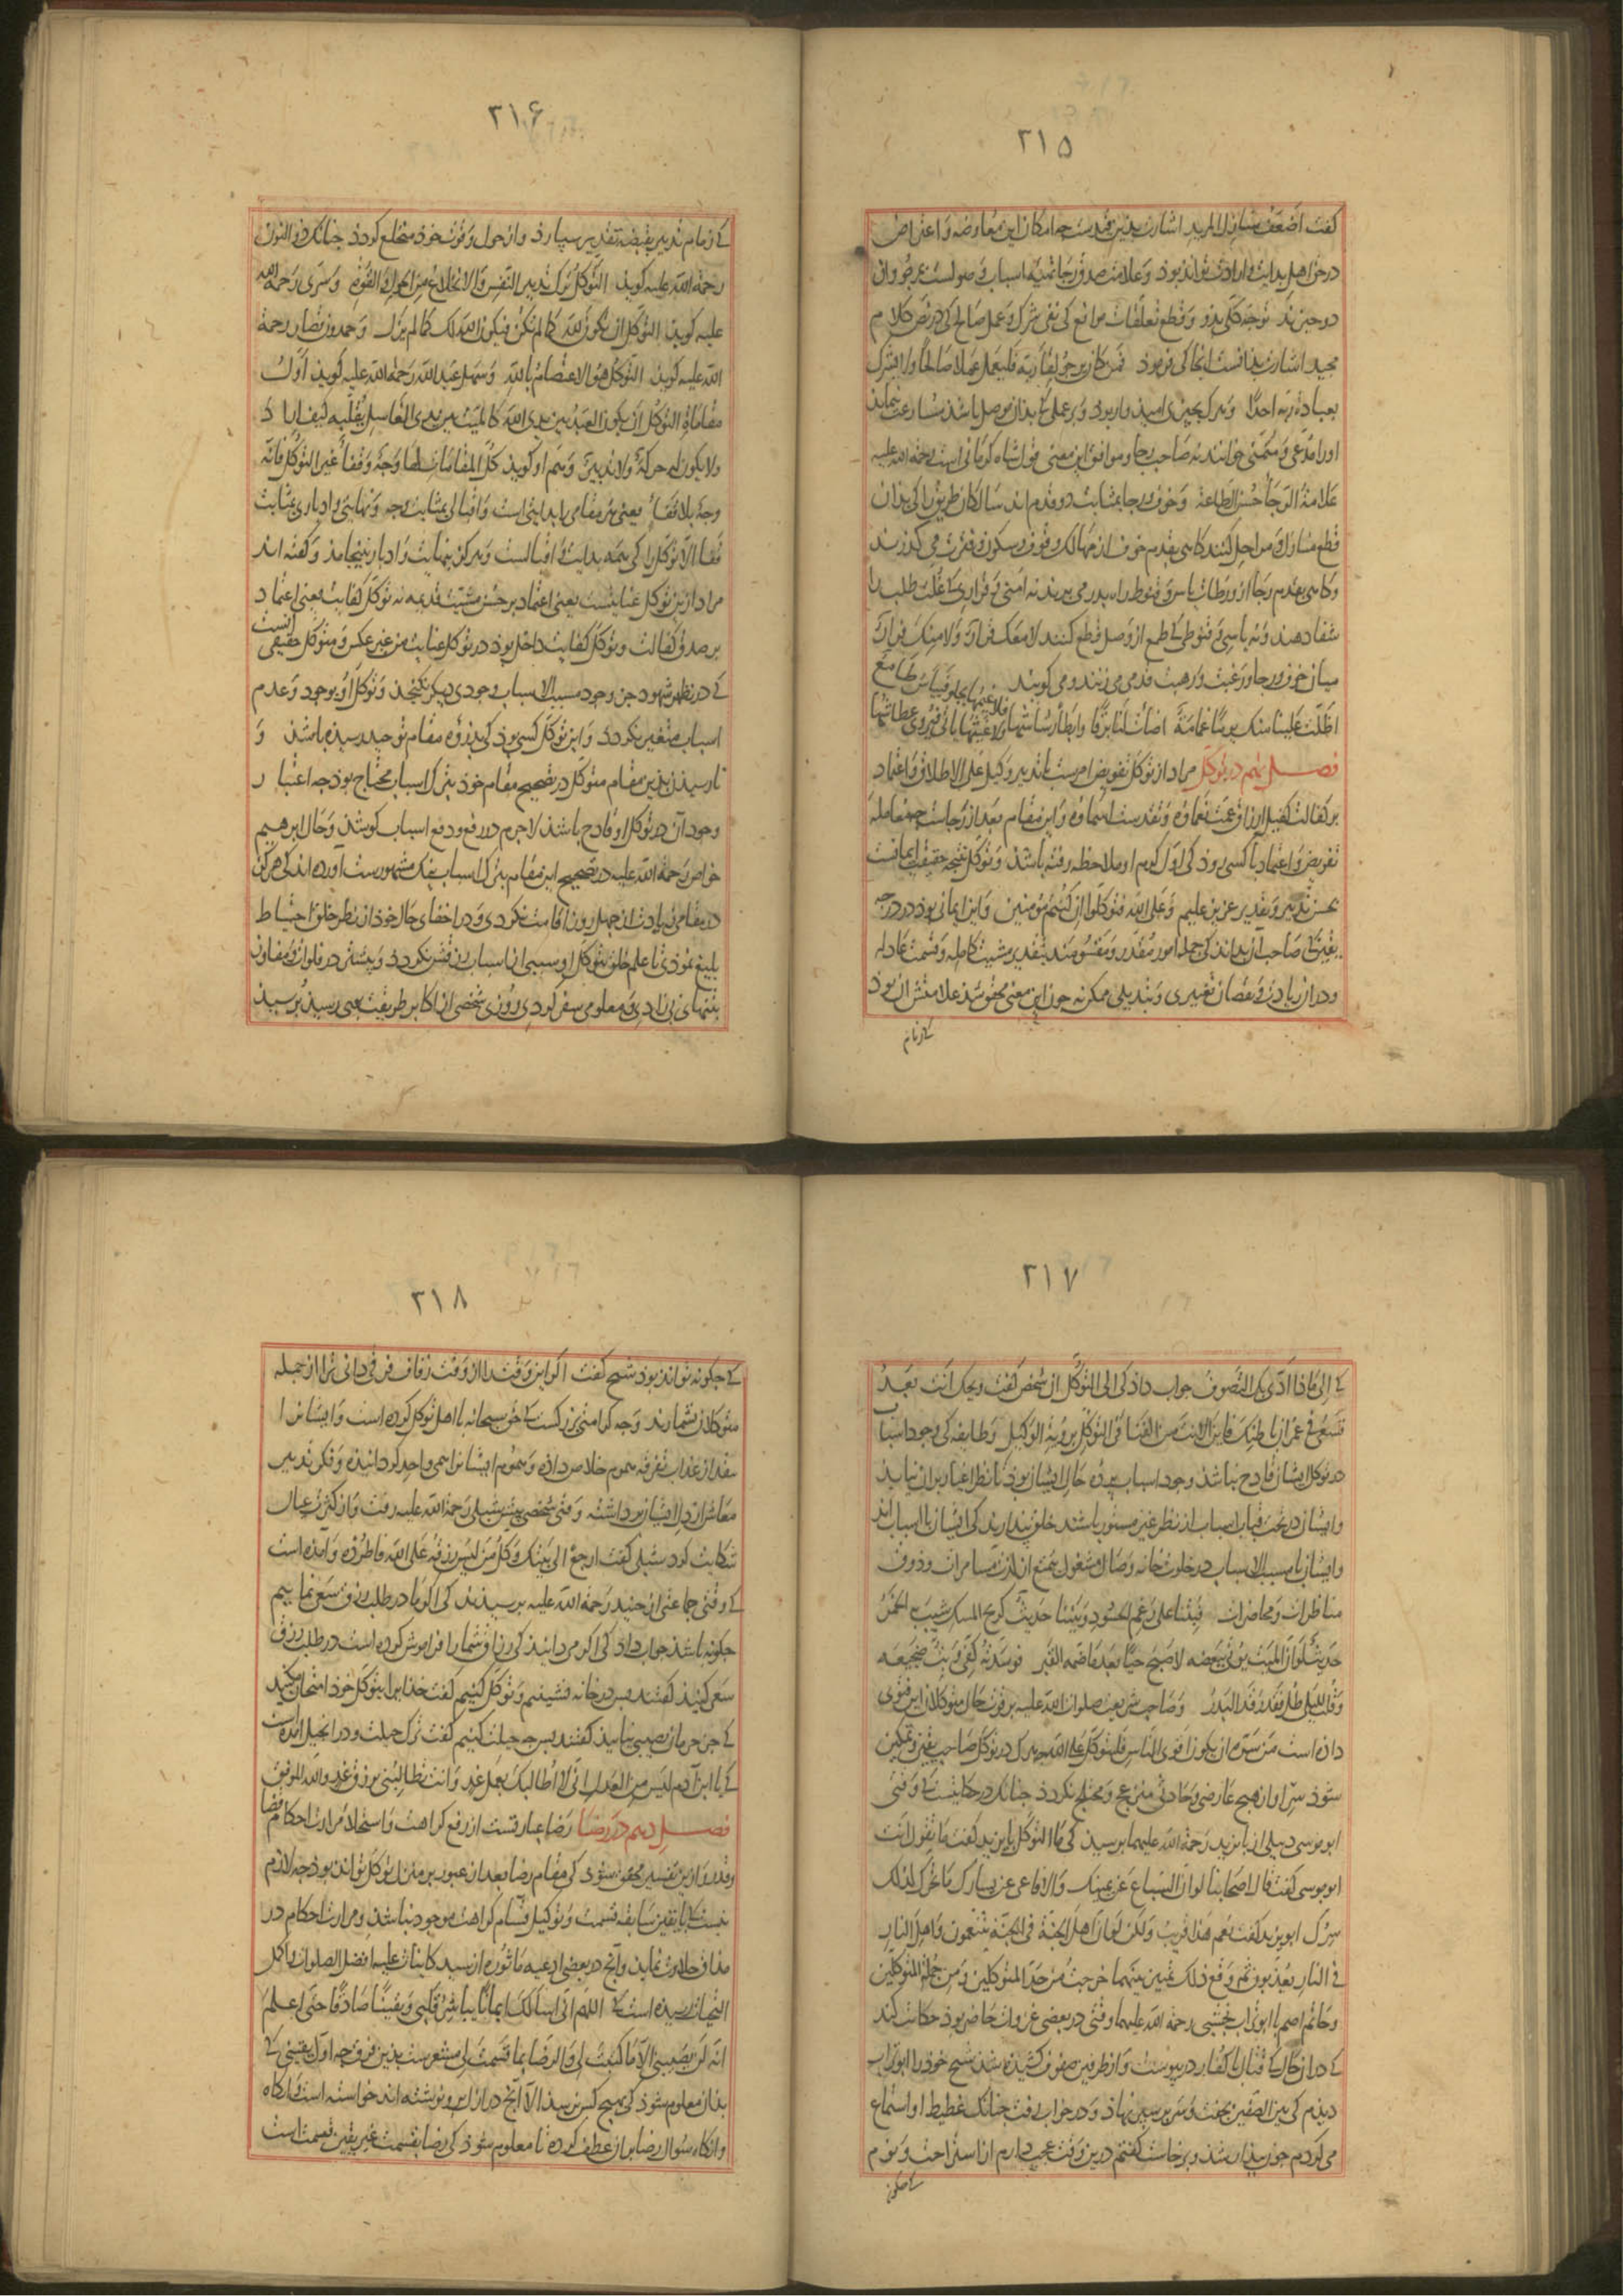 ۲۱۵
گفت اضعف منازل المرید اشارت بدین مقدمست چه امکان این معارضه و اعتراض
در حق اهل بدایت و ارادت تواند بود و علامت صدق رجا تهیه اسباب وصولست عرض و ان
دو چیزند توجه کلی بدو و قطع تعلقات موانع کی نفی شرک و عمل صالح کی در نص کلام
مجید اشارت بدانست انجا کی فرمود فمن کان یرجو لقاء ربه فلیعمل عملا صالحا و لا یشرک
بعبادة ربه احدا و هرک بچیزی امید وار بود و بر عملی کی بدان موصل باشد مسارعت ننماید
او را مدعی و متمنی خوانند نه صاحب رجا و موافق این معنی قول شاه کرمانی است رحمة الله علیه
علامة الرجاء حسن الطاعة و خوف و رجا بمثابت دو قدم اند سالکان طریق را کی بدان
قطع منازل و مراحل کنند کاهی بقدم خوف از مهالک وقوف و سکون و فترت می گذرند
و کاهی بقدم رجا از ورطات یاس و قنوط راه بدر می برند نه امنی و قراری کی علت طلب را
شفا دهند و نه یاسی و قنوطی کی طمع از وصل قطع کنند لا معک قرار و لا منک فرار
میان خوف و رجا و رغبت و رهبت قدمی می زنند و می کویند
اظلت علینا منک یوما غمامة اضاءت لنا برقا و ابطا رشاشها فلا غیمها یجلو فییاس طامع ولا غیثها یاتی فیروی عطاشها
فصل نهم در توکل مراد از توکل تفویض امرست با تدبیر وکیل علی الاطلاق و اعتماد
بر کفالت کفیل ارزاق عمت نعماؤه و تقدست اسماؤه و این مقام بعد از رجاست چه معامله
تفویض و اعتماد با کسی رود کی اول کرم او ملاحظه رفته باشد و توکل نتیجه حقیقت ایمانست
بحسن تدبیر و تقدیر عزیز علیم و علی الله فتوکلوا ان کنتم مؤمنین و این ایمانی بود در درجه
یقین کی صاحب آن بداند کی جمله امور مقدر و مقسومند بتقدیر مشیت کامله و قسمت عادله
و در ان زیادت و نقصان تغییری و تبدیلی ممکن نه چون این معنی محقق شد علامتش ان بود
کی زمام
۲۱۶
کی زمام تدبیر بقبضه تقدیر سپارد و از حول و قوت خود منخلع کردد چنانک ذو النون
رحمة الله علیه کوید التوکل ترک تدبیر النفس و الانخلاع من الحول و القوة و سری رحمة الله
علیه کوید التوکل ان تکون لله کما لم تکن فیکون الله لک کما لم یزل و حمدون قصار رحمة
الله علیه کوید التوکل هو الاعتصام بالله و سهل عبد الله رحمة الله علیه کوید اول
مقامات التوکل ان یکون العبد بین یدی الله کالمیت بین یدی الغاسل یقلبه کیف اراد
ولا یکون له حرکة ولا تدبیر و هم او کوید کل المقامات لها وجه و قفا غیر التوکل فانه
وجه بلا قفا یعنی هر مقامی را بدایتی است و اقبالی بمثابت وجه و نهایتی و ادباری بمثابت
قفا الا توکل را کی همه بدایت و اقبالست و هرکز بنهایت و ادبار نینجامد و کفته اند
مراد ازین توکل عنایتست یعنی اعتماد بر حسن مشیت قدیمه نه توکل کفایت یعنی اعتماد
بر صدق کفالت و توکل کفایت داخل بود در توکل عنایت من غیر عکس و متوکل حقیقی انست
کی در نظر شهود جز وجود مسبب الاسباب وجودی دیکر نکنجد و توکل او بوجود و عدم
اسباب متغیر نکردد و این توکل کسی بود کی بذروه مقام توحید رسیده باشد و
تا رسیدن بدین مقام متوکل در تصحیح مقام خود بترک اسباب محتاج بود چه اعتبار
وجود آن در توکل او قادح باشد لا جرم در رفع و دفع اسباب کوشد و حال ابرهیم
خواص رحمة الله علیه در تصحیح این مقام بترک اسباب نیک مشهورست اورده اند کی هرکز
در مقامی زیادت از چهل روز اقامت نکردی و در اخفای حال خود از نظر خلق احتیاط
بلیغ نمودی تا علم خلق بتوکل او سببی از اسباب رزقش نکردد و پیشتر در فلوات و مفاوز
بتنهای بی زادی و معلومی سفر کردی روزی شخصی از اکابر طریقت بوی رسید پرسید
۲۱۷
کی الی ماذا ادی بک التصوف جواب داد کی الی التوکل ان شخص کفت ویحک انت بعد
تسعی فی عمران باطنک فاین انت من الفنا فی التوکل برویة الوکیل و طایفه کی وجود اسباب
در توکل ایشان قادح نباشد وجود اسباب پرده حال ایشان بود تا نظر اغیار بر ان نیاید
و ایشان در تحت قباب اسباب از نظر غیر مستور باشند خلق پندارند کی ایشان با اسباب اند
و ایشان با مسبب الاسباب در خلوت خانه وصال مشغول بتمتع از لذت مسامرات و ذوق
مناظرات و محاضرات فبتنا علی رغم الحسود و بیننا حدیث کریح المسک شیب به الخمر
حدیث لو ان المیت یوتی ببعضه لاصبح حیا بعد ما ضمه القبر فوسدته کفی و بت ضجیعه
و قلت للیلی طل فقد رقد البدر و صاحب شریعت صلوات الله علیه بر قوت حال متوکلان این فتوی
داده است من سره ان یکون اقوی الناس فلیتوکل علی الله و هرک در توکل صاحب یقین و تمکین
شود سر او از هیچ عارضی و حادثی منزعج و مختلج نکردد چنانک در حکایتست کی وقتی
ابو موسی دبیلی از بایزید رحمة الله علیهما پرسید کی ما التوکل بایزید کفت ما تقول انت
ابو موسی کفت قال اصحابنا لو ان السباع عن یمینک و الافاعی عن یسارک ما تحرک لذلک
سرک ابو یزید کفت نعم هذا قریب و لکن لو ان اهل الجنة فی الجنة یتنعمون و اهل النار
فی النار یعذبون ثم وقع ذلک تمییز بینهما خرجت من حد المتوکلین و من جملة المتوکلین
و حاتم اصم با ابو تراب نخشبی رحمة الله علیهما وقتی در بعضی غزوات حاضر بود حکایت کند
کی در ان حال کی قتال با کفار در پیوست و از طرفین صفوف کشیده شد شیخ خود را ابو تراب
دیدم کی بین الصفین بخفت و سر بر سپر نهاد و در خواب رفت چنانک غطیط او استماع
می کردم چون بیدار شد و برخاست کفتم درین وقت عجب دارم از استراحت و نوم
کی چکونه
۲۱۸
کی چکونه تواند بود شیخ کفت اکر این وقت را از وقت زفاف فرقی دانی ترا از جمله
متوکلان نشمارند وجه کرامتی بزرکست کی حق سبحانه با اهل توکل کرده است و ایشانرا
بنقد از عذاب تفرقه هموم خلاص داده و هموم ایشانرا همی واحد کردانیده و فکر تدبیر
معاش از دل ایشان برداشته وقتی شخصی پیش شبلی رحمة الله علیه رفت و از کثرت عیال
شکایت کرد شبلی کفت ارجع الی بیتک و کل من لیس رزقه علی الله فاطرده و آمده است
کی وقتی جماعتی از جنید رحمة الله علیه پرسیدند کی اکر ما در طلب رزق سعی نماییم
چکونه باشد جواب داد کی اکر می دانید کی رزاق شما را فراموش کرده است در طلب رزق
سعی کنید کفتند پس در خانه نشینیم و توکل کنیم کفت خدایرا بتوکل خود امتحان مکنید
کی جز حرمان نصیبی نیابید کفتند پس چه حیلت کنیم کفت ترک حیلت و در انجیل امده است
کی یا ابن آدم لیس من العدل انی لا اطالبک بعمل غد و انت تطالبنی برزق غد و الله الموفق
فصل دهم در رضا رضا عبارتست از رفع کراهت و استحلاء مرارت احکام قضا
و قدر و ازین تفسیر محقق شود کی مقام رضا بعد از عبور بر منزل توکل تواند بود چه لازم
نیست کی با یقین سابقه قسمت و توکیل قسام کراهت موجود نباشد و مرارت احکام در
مذاق حلاوت نماید و آنچ در بعضی ادعیه ماثوره از سید کاینات علیه افضل الصلوات و اکمل
التحیات رسیده است کی اللهم انی اسالک ایمانا یباشر قلبی و یقینا صادقا حتی اعلم
انه لن یصیبنی الا ما کتبت لی و الرضا بما قسمت لی مشعرست بدین فرق چه اول یقینی کی
بدان معلوم شود کی بهیچ کس نرسد الا آنچ در ازل برو نوشته اند خواسته است و انکاه
و انکاه سوال رضا بر ان عطف کرده تا معلوم شود کی رضا بقسمت غیر یقین قسمت است